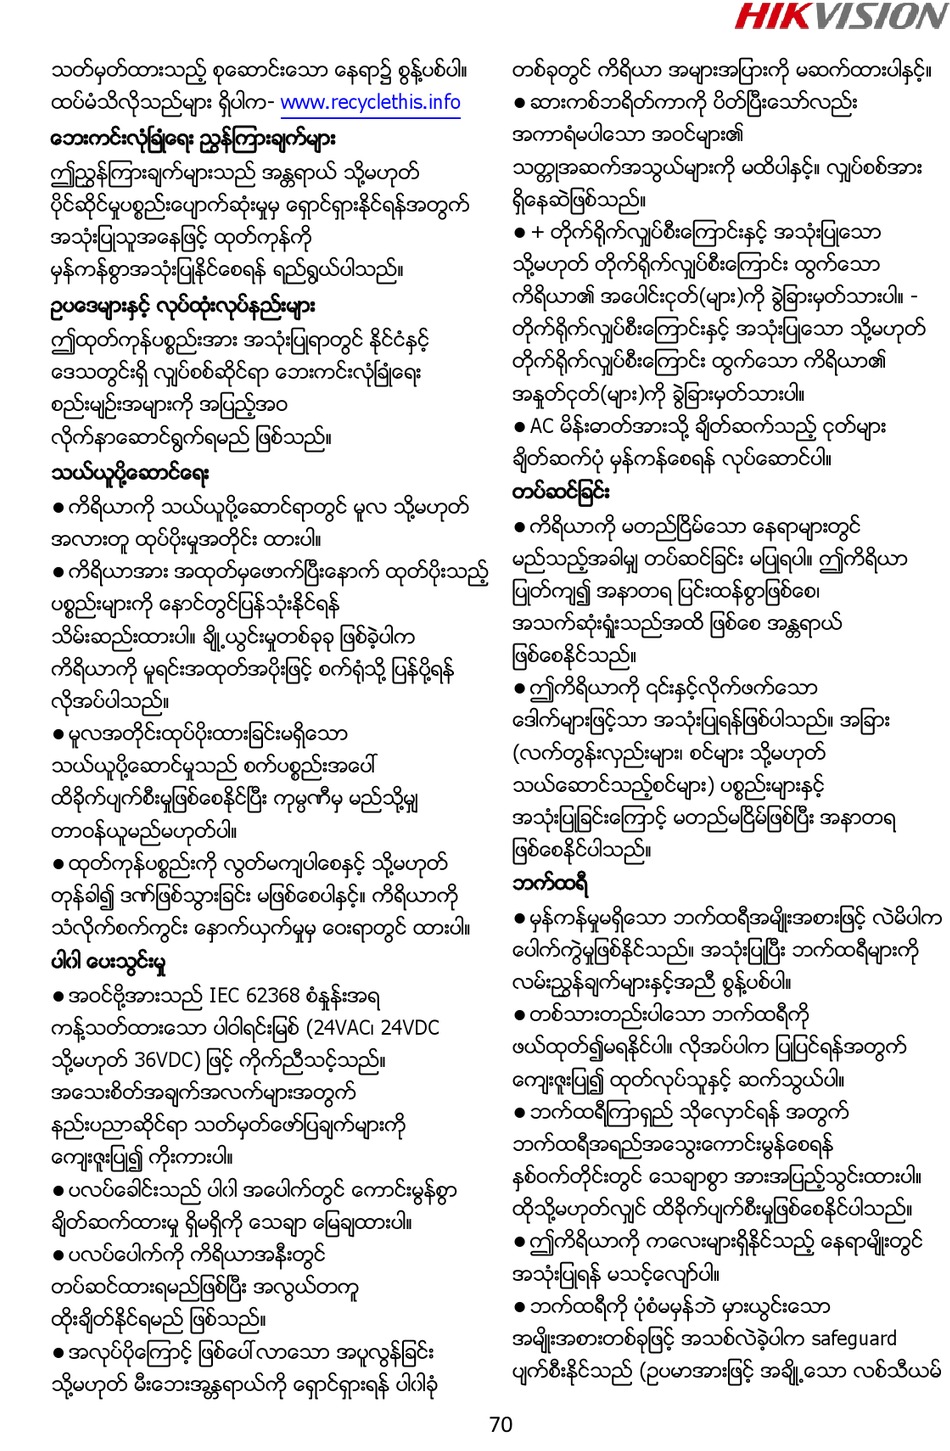 HIKVISION
သတ်မှတ်ထားသည့် စုဆောင်းသော နေရာ၌ စွန့်ပစ်ပါ။
ထပ်မံသိလိုသည်များ ရှိပါက- www.recyclethis.info
ဘေးကင်းလုံခြုံရေး ညွှန်ကြားချက်များ
ဤညွှန်ကြားချက်များသည် အန္တရာယ် သို့မဟုတ်
ပိုင်ဆိုင်မှုပစ္စည်းပျောက်ဆုံးမှုမှ ရှောင်ရှားနိုင်ရန်အတွက်
အသုံးပြုသူအနေဖြင့် ထုတ်ကုန်ကို
မှန်ကန်စွာအသုံးပြုနိုင်စေရန် ရည်ရွယ်ပါသည်။
ဥပဒေများနှင့် လုပ်ထုံးလုပ်နည်းများ
ဤထုတ်ကုန်ပစ္စည်းအား အသုံးပြုရာတွင် နိုင်ငံနှင့်
ဒေသတွင်းရှိ လျှပ်စစ်ဆိုင်ရာ ဘေးကင်းလုံခြုံရေး
စည်းမျဉ်းအများကို အပြည့်အဝ
လိုက်နာဆောင်ရွက်ရမည် ဖြစ်သည်။
သယ်ယူပို့ဆောင်ရေး
● ကိရိယာကို သယ်ယူပို့ဆောင်ရာတွင် မူလ သို့မဟုတ်
အလားတူ ထုပ်ပိုးမှုအတိုင်း ထားပါ။
● ကိရိယာအား အထုတ်မှဖောက်ပြီးနောက် ထုတ်ပိုးသည့်
ပစ္စည်းများကို နောင်တွင်ပြန်သုံးနိုင်ရန်
သိမ်းဆည်းထားပါ။ ချို့ယွင်းမှုတစ်ခုခု ဖြစ်ခဲ့ပါက
ကိရိယာကို မူရင်းအထုတ်အပိုးဖြင့် စက်ရုံသို့ ပြန်ပို့ရန်
လိုအပ်ပါသည်။
● မူလအတိုင်းထုပ်ပိုးထားခြင်းမရှိသော
သယ်ယူပို့ဆောင်မှုသည် စက်ပစ္စည်းအပေါ်
ထိခိုက်ပျက်စီးမှုဖြစ်စေနိုင်ပြီး ကုမ္ပဏီမှ မည်သို့မျှ
တာဝန်ယူမည်မဟုတ်ပါ။
● ထုတ်ကုန်ပစ္စည်းကို လွတ်မကျပါစေနှင့် သို့မဟုတ်
တုန်ခါ၍ ဒဏ်ဖြစ်သွားခြင်း မဖြစ်စေပါနှင့်။ ကိရိယာကို
သံလိုက်စက်ကွင်း နှောက်ယှက်မှုမှ ဝေးရာတွင် ထားပါ။
ပါဝါ ပေးသွင်းမှု
● အဝင်ဗို့အားသည် IEC 62368 စံနှုန်းအရ
ကန့်သတ်ထားသော ပါဝါရင်းမြစ် (24VAC၊ 24VDC
သို့မဟုတ် 36VDC) ဖြင့် ကိုက်ညီသင့်သည်။
အသေးစိတ်အချက်အလက်များအတွက်
နည်းပညာဆိုင်ရာ သတ်မှတ်ဖော်ပြချက်များကို
ကျေးဇူးပြု၍ ကိုးကားပါ။
● ပလပ်ခေါင်းသည် ပါဝါ အပေါက်တွင် ကောင်းမွန်စွာ
ချိတ်ဆက်ထားမှု ရှိမရှိကို သေချာ မြေချထားပါ။
● ပလပ်ပေါက်ကို ကိရိယာအနီးတွင်
တပ်ဆင်ထားရမည်ဖြစ်ပြီး အလွယ်တကူ
ထိုးချိတ်နိုင်ရမည် ဖြစ်သည်။
● အလုပ်ပိုကြောင့် ဖြစ်ပေါ်လာသော အပူလွန်ခြင်း
သို့မဟုတ် မီးဘေးအန္တရာယ်ကို ရှောင်ရှားရန် ပါဝါခုံ
တစ်ခုတွင် ကိရိယာ အများအပြားကို မဆက်ထားပါနှင့်။
● ဆားကစ်ဘရိတ်ကာကို ပိတ်ပြီးသော်လည်း
အကာရံမပါသော အဝင်များ၏
သတ္တုအဆက်အသွယ်များကို မထိပါနှင့်။ လျှပ်စစ်အား
ရှိနေဆဲဖြစ်သည်။
● + တိုက်ရိုက်လျှပ်စီးကြောင်းနှင့် အသုံးပြုသော
သို့မဟုတ် တိုက်ရိုက်လျှပ်စီးကြောင်း ထွက်သော
ကိရိယာ၏ အပေါင်းငုတ်(များ)ကို ခွဲခြားမှတ်သားပါ။ -
တိုက်ရိုက်လျှပ်စီးကြောင်းနှင့် အသုံးပြုသော သို့မဟုတ်
တိုက်ရိုက်လျှပ်စီးကြောင်း ထွက်သော ကိရိယာ၏
အနှုတ်ငုတ်(များ)ကို ခွဲခြားမှတ်သားပါ။
● AC မိန်းဓာတ်အားသို့ ချိတ်ဆက်သည့် ငုတ်များ
ချိတ်ဆက်ပုံ မှန်ကန်စေရန် လုပ်ဆောင်ပါ။
တပ်ဆင်ခြင်း
● ကိရိယာကို မတည်ငြိမ်သော နေရာများတွင်
မည်သည့်အခါမျှ တပ်ဆင်ခြင်း မပြုရပါ။ ဤကိရိယာ
ပြုတ်ကျ၍ အနာတရ ပြင်းထန်စွာဖြစ်စေ၊
အသက်ဆုံးရှုံးသည်အထိ ဖြစ်စေ အန္တရာယ်
ဖြစ်စေနိုင်သည်။
● ဤကိရိယာကို ၎င်းနှင့်လိုက်ဖက်သော
ဒေါက်များဖြင့်သာ အသုံးပြုရန်ဖြစ်ပါသည်။ အခြား
(လက်တွန်းလှည်းများ၊ စင်များ သို့မဟုတ်
သယ်ဆောင်သည့်စင်များ) ပစ္စည်းများနှင့်
အသုံးပြုခြင်းကြောင့် မတည်မငြိမ်ဖြစ်ပြီး အနာတရ
ဖြစ်စေနိုင်ပါသည်။
ဘက်ထရီ
● မှန်ကန်မှုမရှိသော ဘက်ထရီအမျိုးအစားဖြင့် လဲမိပါက
ပေါက်ကွဲမှုဖြစ်နိုင်သည်။ အသုံးပြုပြီး ဘက်ထရီများကို
လမ်းညွှန်ချက်များနှင့်အညီ စွန့်ပစ်ပါ။
● တစ်သားတည်းပါသော ဘက်ထရီကို
ဖယ်ထုတ်၍မရနိုင်ပါ။ လိုအပ်ပါက ပြုပြင်ရန်အတွက်
ကျေးဇူးပြု၍ ထုတ်လုပ်သူနှင့် ဆက်သွယ်ပါ။
● ဘက်ထရီကြာရှည် သိုလှောင်ရန် အတွက်
ဘက်ထရီအရည်အသွေးကောင်းမွန်စေရန်
နှစ်ဝက်တိုင်းတွင် သေချာစွာ အားအပြည့်သွင်းထားပါ။
ထိုသို့မဟုတ်လျှင် ထိခိုက်ပျက်စီးမှုဖြစ်စေနိုင်ပါသည်။
● ဤကိရိယာကို ကလေးများရှိနိုင်သည့် နေရာမျိုးတွင်
အသုံးပြုရန် မသင့်လျော်ပါ။
● ဘက်ထရီကို ပုံစံမမှန်ဘဲ မှားယွင်းသော
အမျိုးအစားတစ်ခုဖြင့် အသစ်လဲခဲ့ပါက safeguard
ပျက်စီးနိုင်သည် (ဥပမာအားဖြင့် အချို့သော လစ်သီယမ်
70